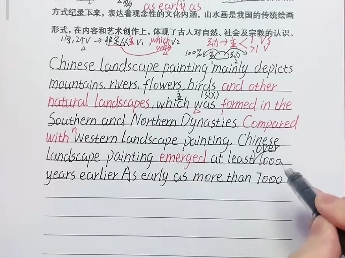 as early as
方式纪录下来，表达着观念性的文化内涵。山水画是我国的传统绘画
形式，在内容和艺术创作上，体现了古人对自然、社会及宗教的认识。
Chinese landscape painting mainly depicts
mountains, rivers, flowers, birds and other
natural landscapes, which was formed in the
Southern and Northern Dynasties Compared
with Western landscape painting, Chinese
over
landscape painting emerged at least 1000
years earlier. As early as more than 7000